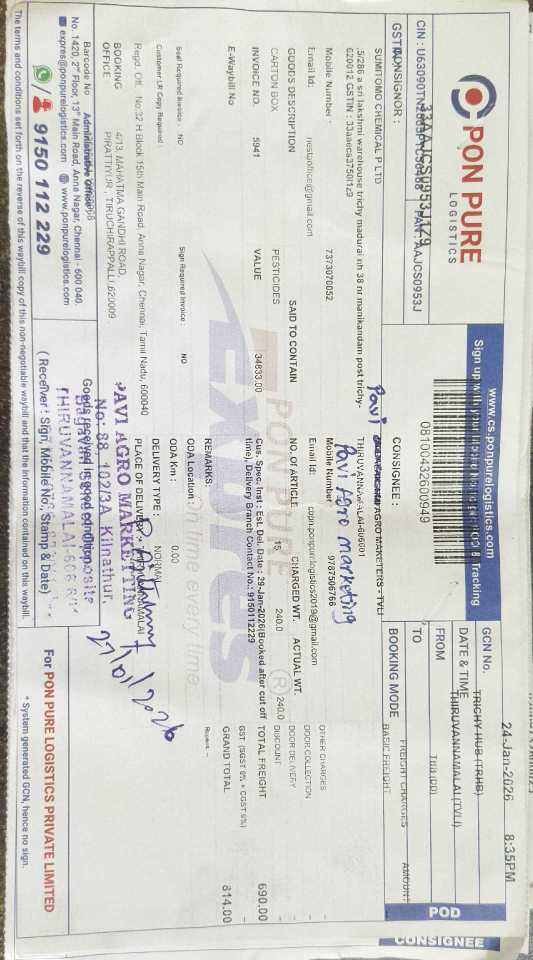 PON PURE
LOGISTICS
www.cs.ponpurelogistics.com
08100432600949
GCN No.
DATE & TIME
24-Jan-2026 8:35PM
FROM
TRICHY HUB (TRHB)
TO
THIRUVANNAMALAI(TVLI)
BOOKING MODE
POD
CONSIGNEE
33AAJCS0953J1Z9
PAN : AAJCS0953J
CONSIGNOR :
SUMITOMO CHEMICAL P LTD
5/286 a sri lakshmi warehouse trichy madurai nh 38 nr manikandam post trichy-
620012 GSTIN : 33aaeca3750l1z9
Mobile Number : 7373070052
Email Id: nestpoffice@gmail.com
CONSIGNEE :
Pavi
AGRO MAKETERS - TVLI
THIRUVANNAMALAI-606001
Pavi Agro marketing
Mobile Number 9787506766
Email Id: cbpnponpurelogistics2019@gmail.com
GOODS DESCRIPTION
SAID TO CONTAIN
NO. OF ARTICLE
CHARGED WT.
ACTUAL WT.
CARTON BOX
PESTICIDES
15
240.0
240.0
INVOICE NO. 5941
VALUE 34833.00
E-Waybill No
Cus. Spec. Inst : Est. Del. Date : 29-Jan-2026(Booked after cut off
time), Delivery Branch Contact No.: 9150112229
REMARKS:
FREIGHT CHARGES
AMOUNT
BASIC FREIGHT
OTHER CHARGES
DOOR COLLECTION
DOOR DELIVERY
DISCOUNT
TOTAL FREIGHT 690.00
GST (SGST 6% + CGST 6%)
GRAND TOTAL 814.00
PON PURE
EXPRES
On time every time
Seal Required Invoice : NO
Sign Required Invoice NO
Customer LR Copy Required :
ODA Location :
ODA Km : 0.00
DELIVERY TYPE : NORMAL
Regd. Off. No:32 H Block 15th Main Road, Anna Nagar, Chennai, Tamil Nadu, 600040
BOOKING
OFFICE
4/13, MAHATMA GANDHI ROAD,
PIRATTIYUR, TIRUCHIRAPPALLI 620009
PLACE OF DELIVERY
PAVI AGRO MARKETTING
No: 88, 102/3A, Kilnathur,
THIRUVANNAMALAI-606
27/01/2026
Goods received in good condition
( Receiver : Sign, Mobile No., Stamp & Date)
Barcode No
Administrative Office :
No. 1420, 2nd Floor, 13th Main Road, Anna Nagar, Chennai - 600 040.
expres@ponpurelogistics.com www.ponpurelogistics.com
9150 112 229
For PON PURE LOGISTICS PRIVATE LIMITED
* System generated GCN, hence no sign.
The terms and conditions set forth on the reverse of this waybill copy of this non-negotiable waybill and that the information contained on this waybill.